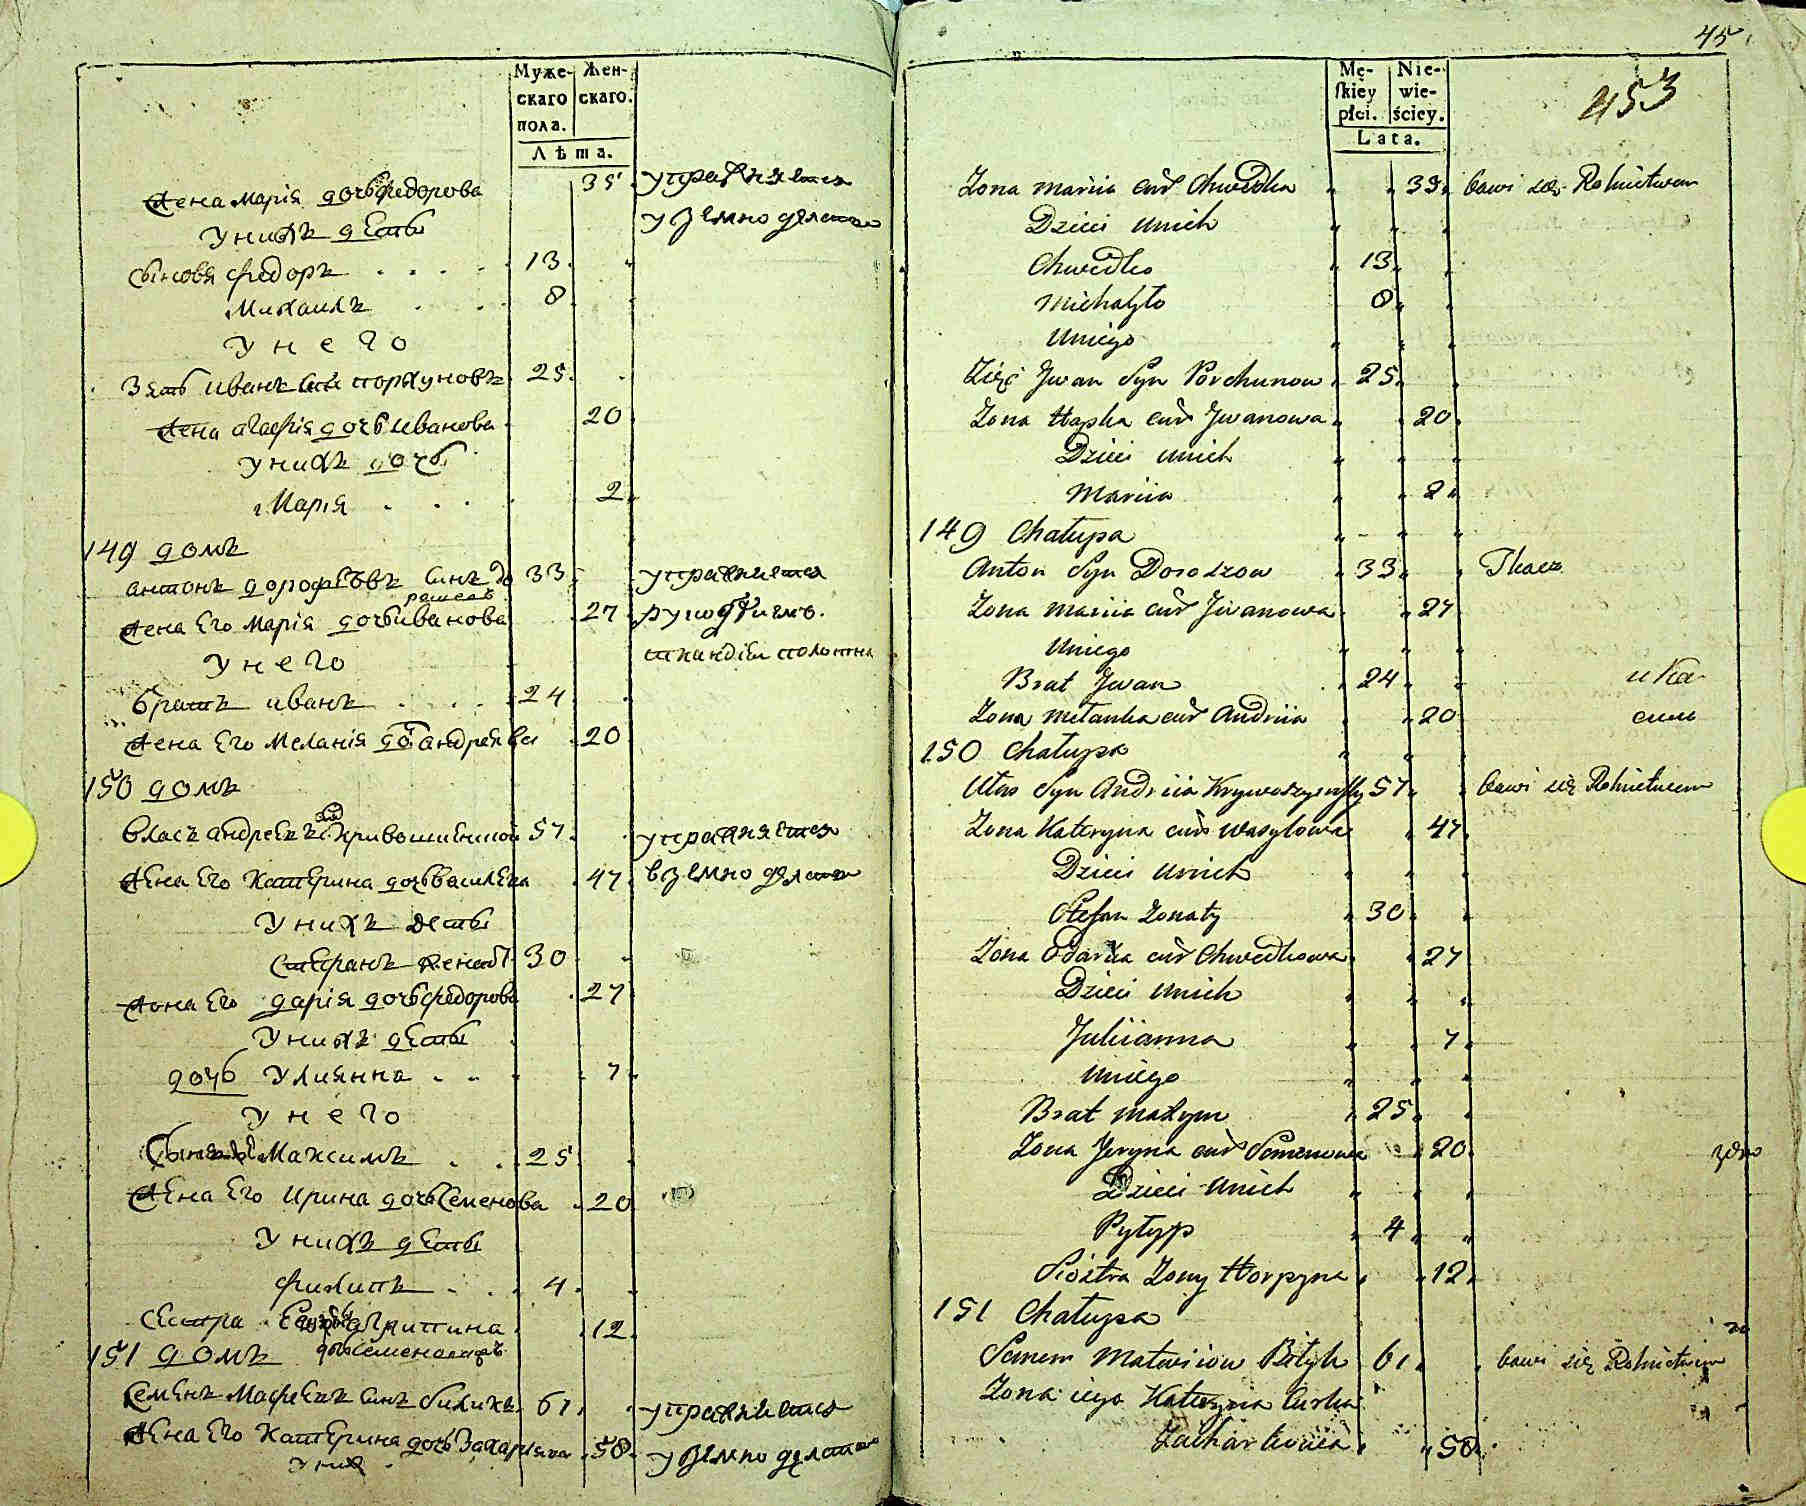 Муже- Жен-
скаго скаго.
пола.
Лѣта.
жена Марія дочь федорова 35 упражняется
у нихъ дѣти у земно делст
сыновя федоръ 13
Михаилъ 8
у него
Зять иванъ сынъ порхуновъ 25
жена агафія дочь иванова 20
у нихъ дочь
Марія 2
149 домъ
антонъ дорофѣевъ синъ 33 упражняется
жена Его Марія дочь иванова 27
у него полотна
братъ иванъ 24
жена Его Меланія доч андреява 20
150 домъ
власъ андреевъ кривошиенной 57 упражняется
жена Его Катерина дочь василева 47 в земно делст
у нихъ дети
стефанъ женатъ 30
жона Его дарія дочь федорова 27
у нихъ дѣти
дочь Улиянна 7
у него
Сынъ Максимъ 25
жена Его Ирина дочь Семенова 20
у нихъ дѣты
филипъ 4
сестра агрипина 12
151 домъ
Семенъ Мафеевъ синъ биликъ 61 упражняется
жена Его Катерина дочь Захарява 50 у земно делст
у них
45
453
Mę- Nie-
skiey wie-
płci. ściey.
Lata.
Zona Mariia cur Chwedka 33 bawi się Rolnictwem
Dzieci u nich
Chwedko 13
Michałko 8
U niego
Zięć Jwan Syn Porchunow 25
Zona Hapka cur Jwanowa 20
Dzieci u nich
Mariia 2
149 Chałupa
Anton Syn Doroszow 33 Tkacz
Zona Mariia cur Jwanowa 27
U niego
Brat Jwan 24
Zona Mełanka cur Andriia 20
150 Chałupa
Ułas Syn Andriia Krywoszyinsky 57 bawi się Rolnictwem
Zona Kateryna cur Wasylowa 47
Dzieci u nich
Stefan Zonaty 30
Zona Odarka cur Chwedkowa 27
Dzieci u nich
Juliianna 7
U niego
Brat Maxym 25
Zona Jeryna cur Semenowa 20
Dzieci u nich
Pyłyp 4
Siostra Zony Horpyna 12
151 Chałupa
Semen Matwiiow Biłyk 61 bawi się Rolnictwem
Zona iego Kateryna Curka
Zacharkowa 50